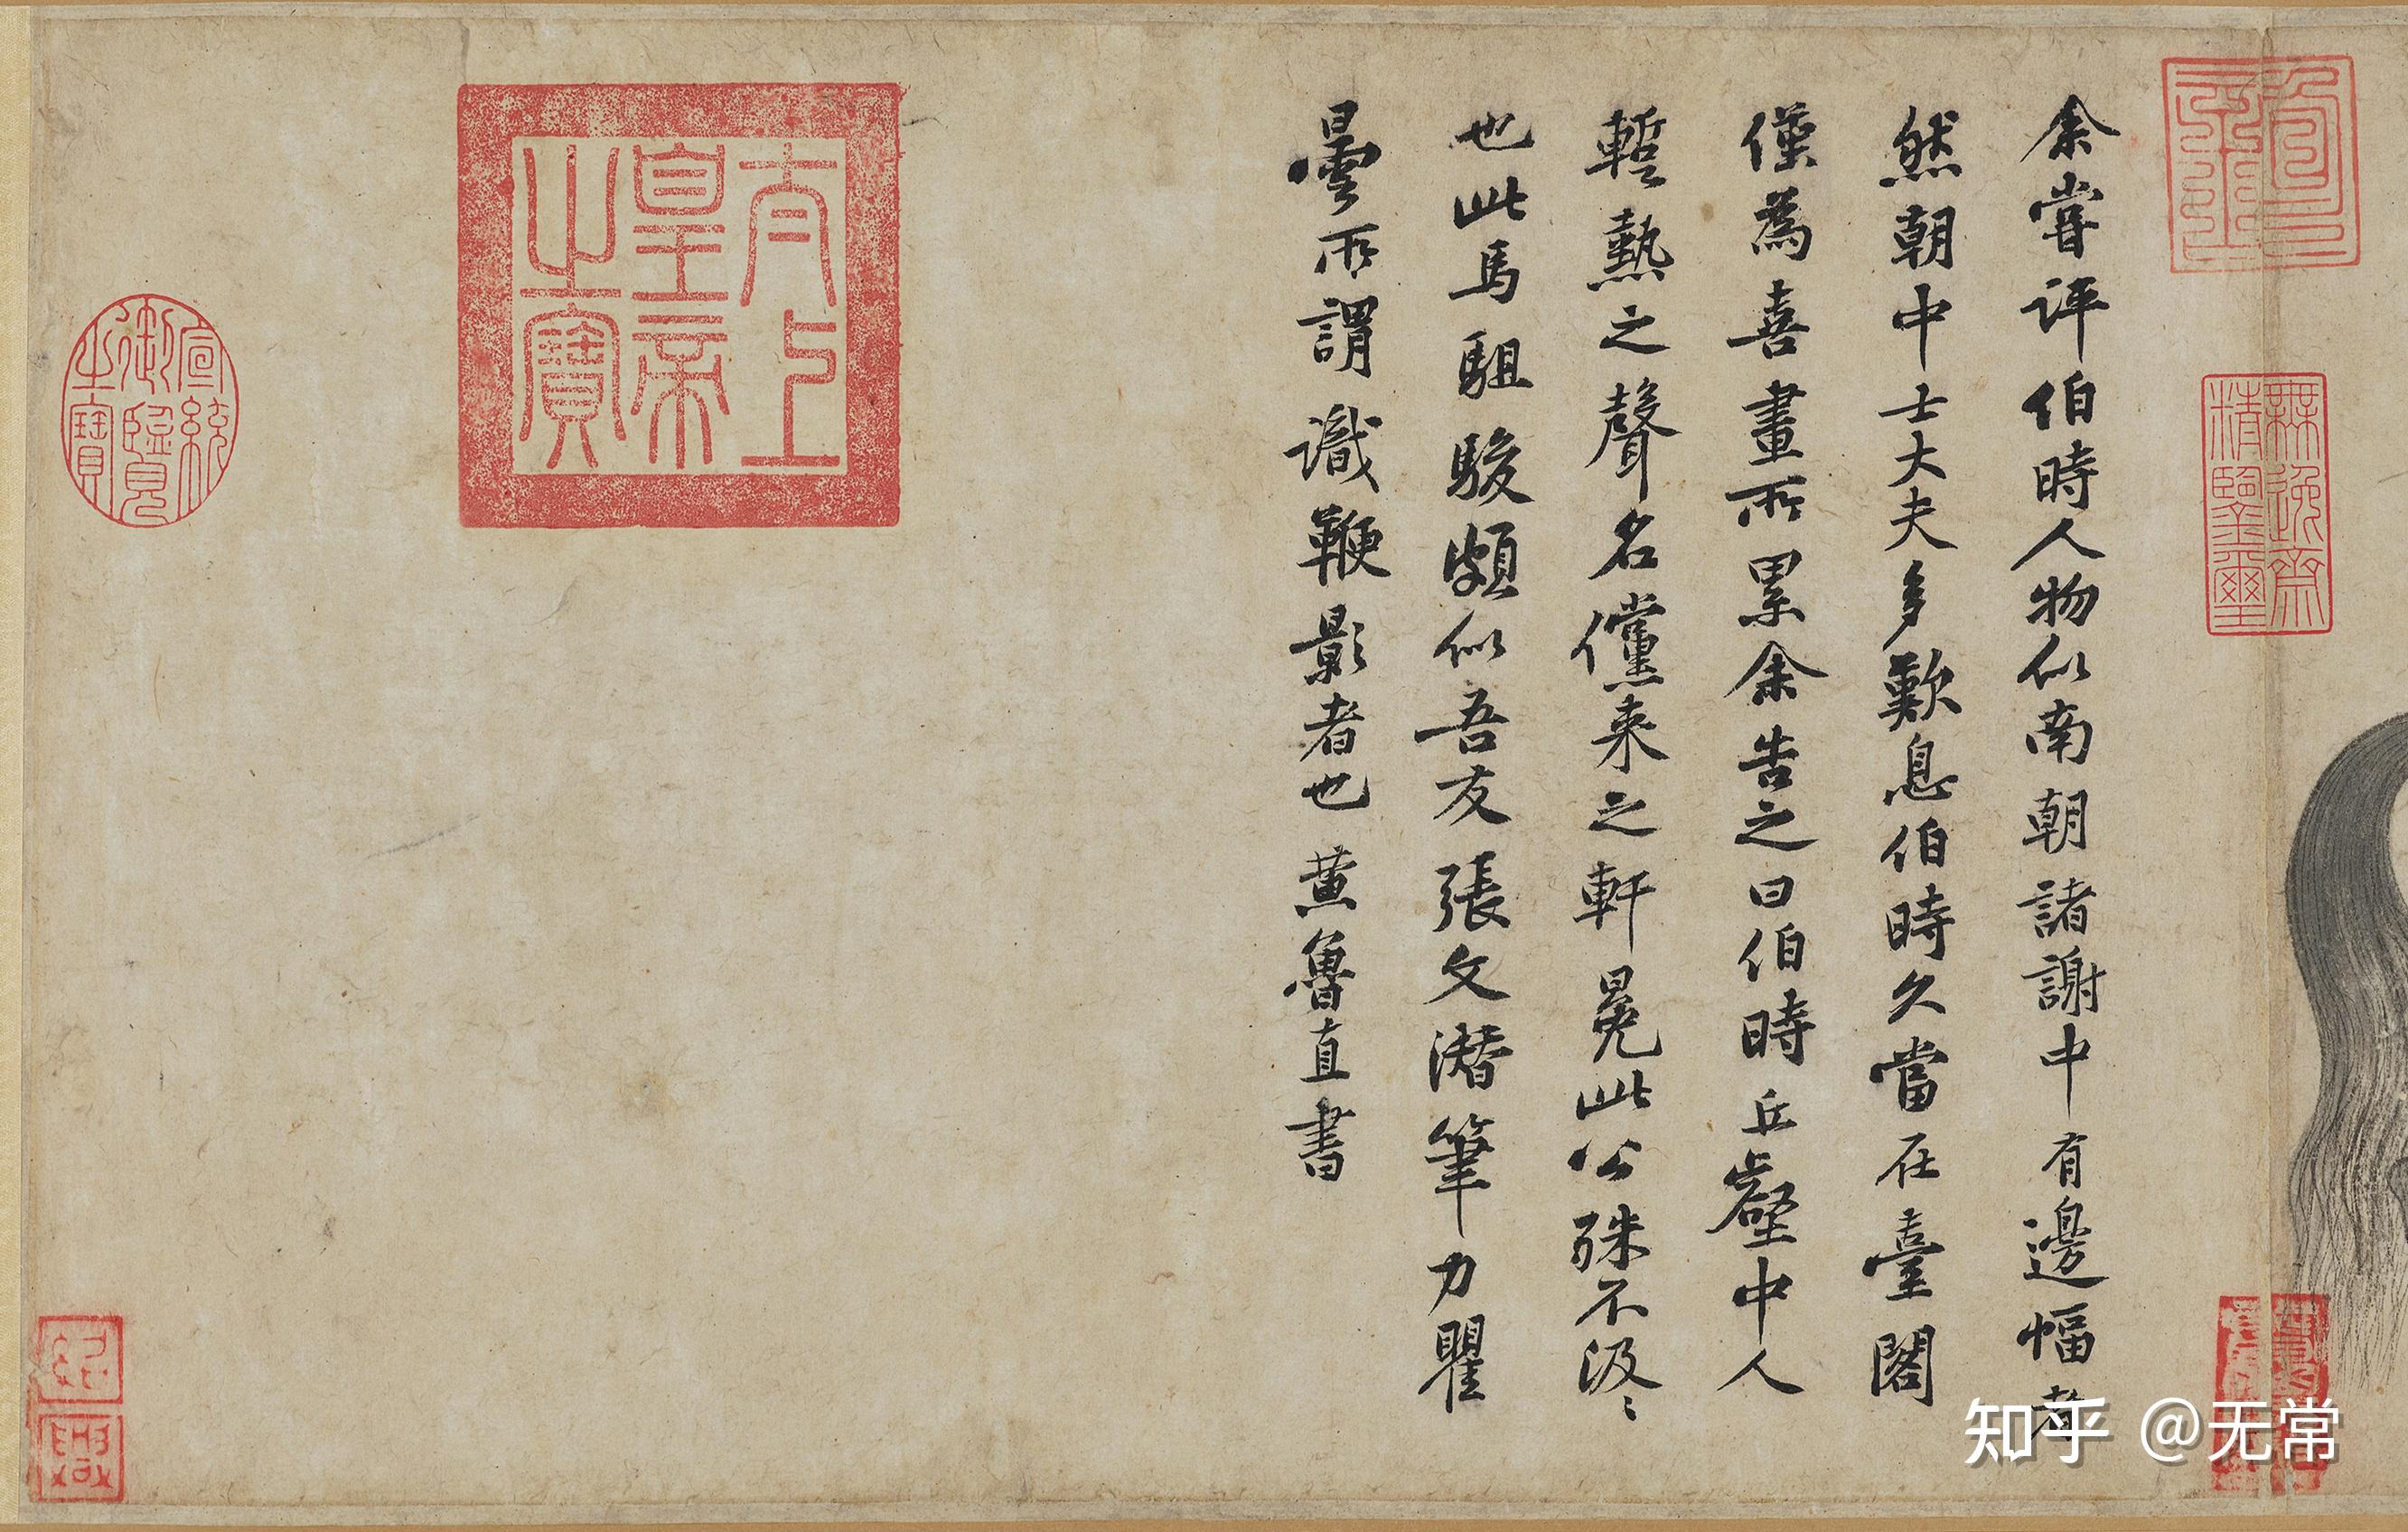 余嘗評伯時人物似南朝諸謝中有邊幅者
然朝中士大夫多歎息伯時久當在臺閣
僅為喜畫所累余告之曰伯時丘壑中人
暫熱之聲名儻来之軒冕此公殊不汲〻
也此馬駔駿頗似吾友張文潜筆力瞿
曇所謂識鞭影者也黄魯直書
太上
皇帝
之寶
宣統
御覽
之寶
無逸齋
精鑒璽
紹
興
知乎 @无常